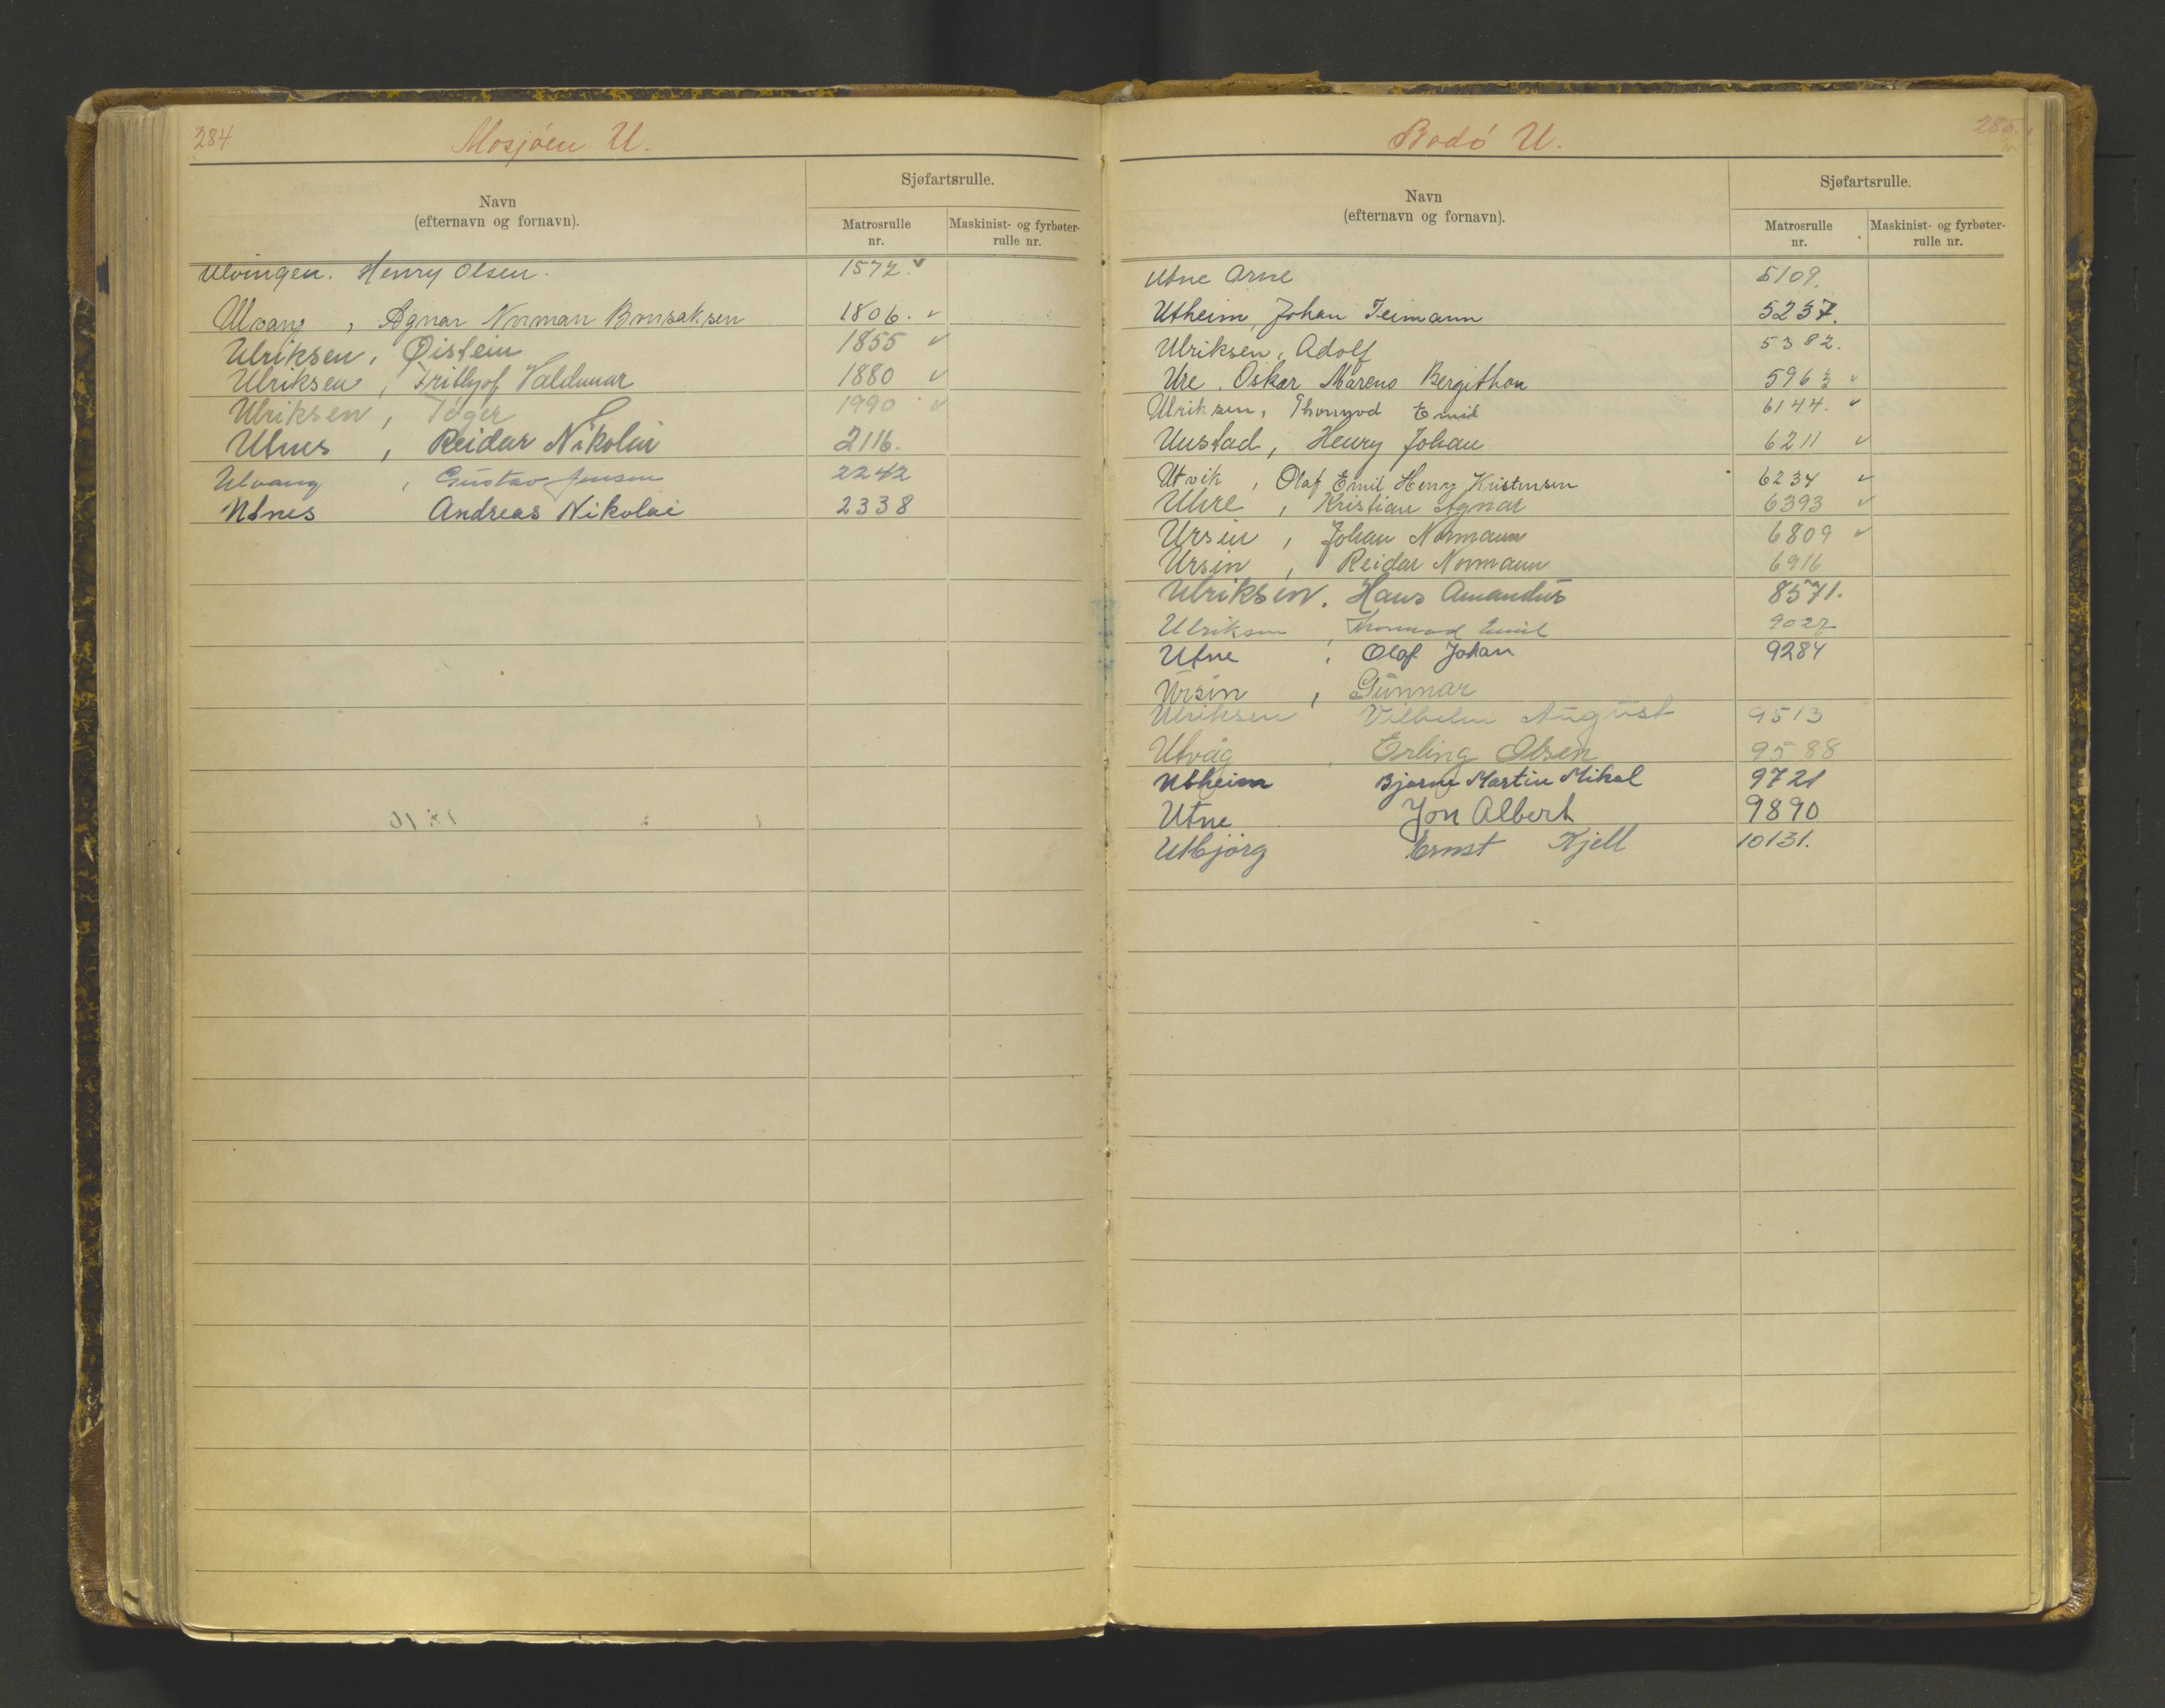 284
Mosjöen U.
Navn
(efternavn og fornavn).
Sjøfartsrulle.
Matrosrulle
nr.
Maskinist- og fyrbøter-
rulle nr.
Ulvingen. Henry Olsen. 1572. v
Ulvang, Agnar Norman Brusaksen 1806. v
Ulriksen, Øistein 1855 v
Ulriksen, Frithjof Valdemar 1880 v
Ulriksen, Töger 1990 v
Utnes, Reidar Nikolai 2116.
Ulvang, Gustav Jensen 2242
Utnes Andreas Nikolai 2338
Bodö U.
285.
Navn
(efternavn og fornavn).
Sjøfartsrulle.
Matrosrulle
nr.
Maskinist- og fyrbøter-
rulle nr.
Utne Arne 5109.
Utheim, Johan Teimann 5237.
Ulriksen, Adolf 5382.
Ure. Oskar Mareno Bergithon 5963 v
Ulriksen, Thormod Emil 6144. v
Unstad, Henry Johan 6211 v
Utvik, Olaf Emil Henry Kristensen 6234 v
Uhre, Kristian Agnar 6393 v
Ursin, Johan Normann 6809 v
Ursin, Reidar Normann 6916
Ulriksen. Hans Amandus 8571.
Ulriksen, Thormod Emil 9022
Utne, Olaf Johan 9284
Ursin, Gunnar
Ulriksen Vilhelm August 9513
Utvåg, Erling Olsen 9588
Utheim Bjarne Martin Mikal 9721
Utne Jon Albert 9890
Utbjörg Ernst Kjell 10131.